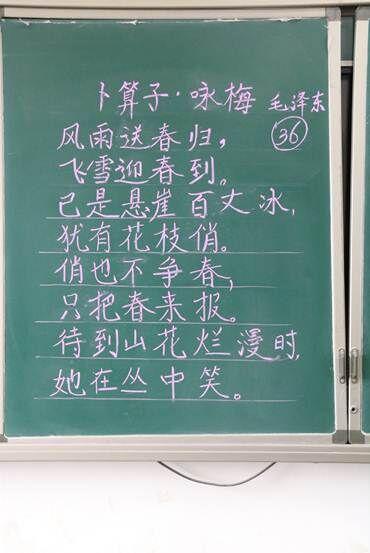 卜算子·咏梅 毛泽东
风雨送春归，
36
飞雪迎春到。
已是悬崖百丈冰，
犹有花枝俏。
俏也不争春，
只把春来报。
待到山花烂漫时，
她在丛中笑。